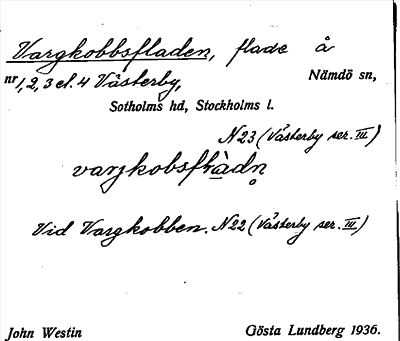 Vargkobbsfladen, flade å
nr 1, 2, 3 el. 4 Västerby, Nämdö sn,
Sotholms hd, Stockholms l.
N23 (Västerby ser. III)
vargkobsflàdn̥
Vid Vargkobben. N22 (Västerby ser. III)
John Westin Gösta Lundberg 1936.